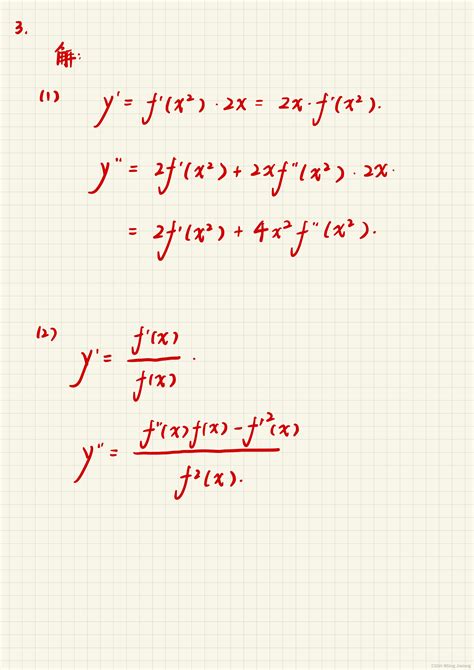 3.
解:
(1) y' = f'(x²) · 2x = 2x · f'(x²).
y'' = 2f'(x²) + 2x f''(x²) · 2x.
= 2f'(x²) + 4x² f''(x²).
(2) y' = f'(x) / f(x) .
y'' = f''(x) f(x) - f'²(x) / f²(x).